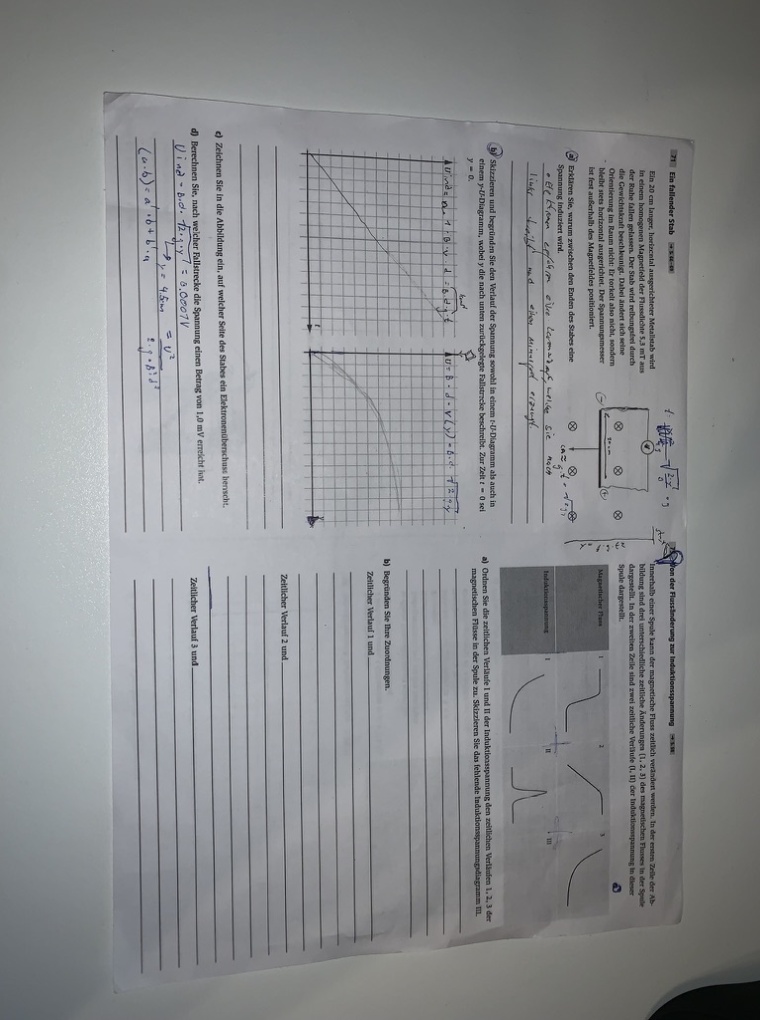 71 Ein fallender Stab
Ein 20 cm langer, horizontal ausgerichteter Metallstab wird
in einem homogenen Magnetfeld der Flussdichte 5,3 mT aus
der Ruhe fallen gelassen. Der Stab wird reibungsfrei durch
die Gewichtskraft beschleunigt. Dabei ändert sich seine
Orientierung im Raum nicht: Er torkelt also nicht, sondern
bleibt stets horizontal ausgerichtet. Der Spannungsmesser
ist fest außerhalb des Magnetfeldes positioniert.
a) Erklären Sie, warum zwischen den Enden des Stabes eine
Spannung induziert wird.
erfahren eine Lorentzkraft welche sie nach
links und einen Minuspol erzeugt
b) Skizzieren und begründen Sie den Verlauf der Spannung sowohl in einem t-U-Diagramm als auch in
einem y-U-Diagramm, wobei y die nach unten zurückgelegte Fallstrecke beschreibt. Zur Zeit t = 0 sei
y = 0.
B · v · d = B·d·g·t
U = B · d · v(y) = B·d·√2·g·y
t
c) Zeichnen Sie in die Abbildung ein, auf welcher Seite des Stabes ein Elektronenüberschuss herrscht.
d) Berechnen Sie, nach welcher Fallstrecke die Spannung einen Betrag von 1,0 mV erreicht hat.
Uind = B·d·√2·g·y = 0,0001V
y = 4,5cm = U²
2·g·B²·d²
(a·b) = a · b + b · a
Von der Flussänderung zur Induktionsspannung
Innerhalb einer Spule kann der magnetische Fluss zeitlich verändert werden. In der ersten Zeile der Ab-
bildung sind drei unterschiedliche zeitliche Änderungen (1, 2, 3) des magnetischen Flusses in der Spule
dargestellt. In der zweiten Zeile sind zwei zeitliche Verläufe (I, II) der Induktionsspannung in dieser
Spule dargestellt.
Magnetischer Fluss 1 2 3
Induktionsspannung I II III
a) Ordnen Sie die zeitlichen Verläufe I und II der Induktionsspannung den zeitlichen Verläufen 1, 2, 3 der
magnetischen Flüsse in der Spule zu. Skizzieren Sie das fehlende Induktionsspannungsdiagramm III.
b) Begründen Sie Ihre Zuordnungen.
Zeitlicher Verlauf 1 und
Zeitlicher Verlauf 2 und
Zeitlicher Verlauf 3 und